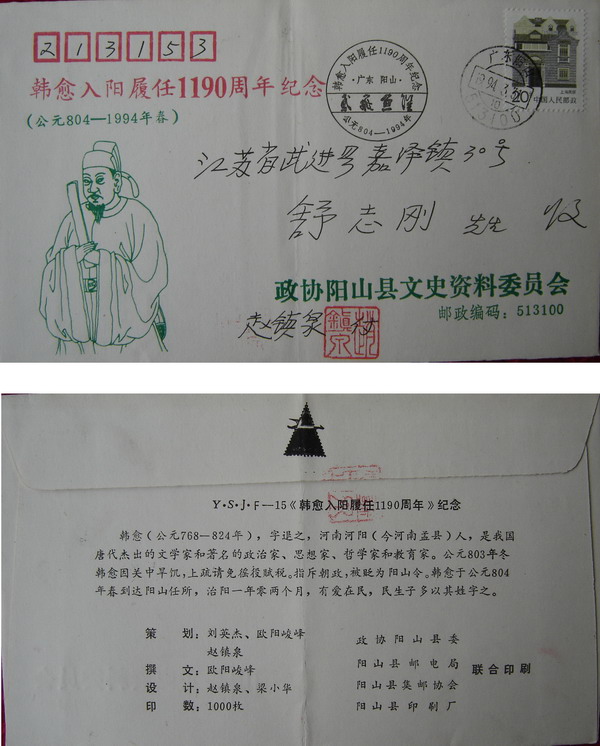 213153
韩愈入阳履任1190周年纪念
(公元804—1994年春)
韩愈入阳履任1190周年纪念
·广东 阳山·
公元804—1994年
广东阳山
1994.3.
513100
20
中国人民邮政
江苏省武进县嘉泽镇30号
舒志刚 先生 收
政协阳山县文史资料委员会
邮政编码：513100
赵镇泉
Y·S·J·F—15《韩愈入阳履任1190周年》纪念
韩愈（公元768—824年），字退之，河南河阳（今河南孟县）人，是我国
唐代杰出的文学家和著名的政治家、思想家、哲学家和教育家。公元803年冬
韩愈因关中旱饥，上疏请免徭役赋税。指斥朝政，被贬为阳山令。韩愈于公元804
年春到达阳山任所，治阳一年零两个月，有爱在民，民生子多以其姓字之。
策 划：刘英杰、欧阳峻峰
赵镇泉
撰 文：欧阳峻峰
设 计：赵镇泉、梁小华
印 数：1000枚
政协阳山县委
阳山县邮电局
阳山县集邮协会
阳山县印刷厂
联合印刷